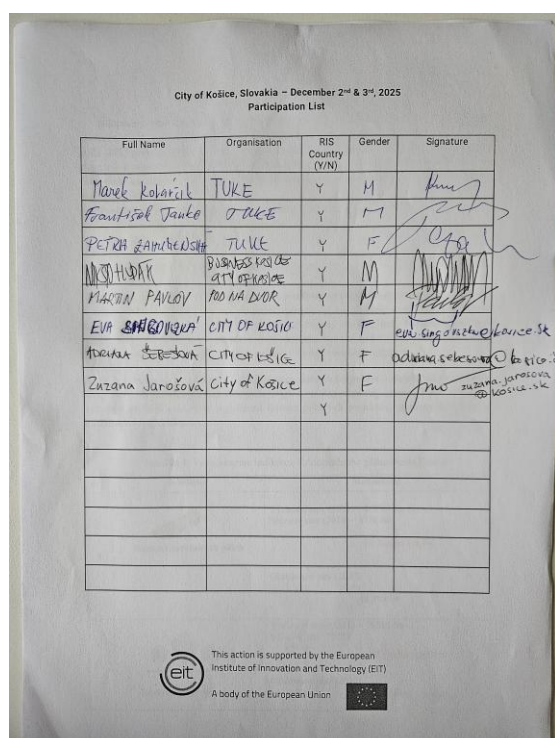 City of Košice, Slovakia – December 2nd & 3rd, 2025
Participation List
Full Name Organisation RIS Country (Y/N) Gender Signature
Marek Kolarčík TUKE Y M
František Janke TUKE Y M
PETRA TUKE Y F
HUDÁK BUSINESS KOŠICE CITY OF KOŠICE Y M
MARTIN PAVLOV POD NA DVOR Y M
EVA CITY OF KOŠICE Y F
ADRIANA ŠEBEŠOVÁ CITY OF KOŠICE Y F
Zuzana Jarošová City of Košice Y F zuzana.jarosova
@kosice.sk
Y
eit
This action is supported by the European
Institute of Innovation and Technology (EIT)
A body of the European Union